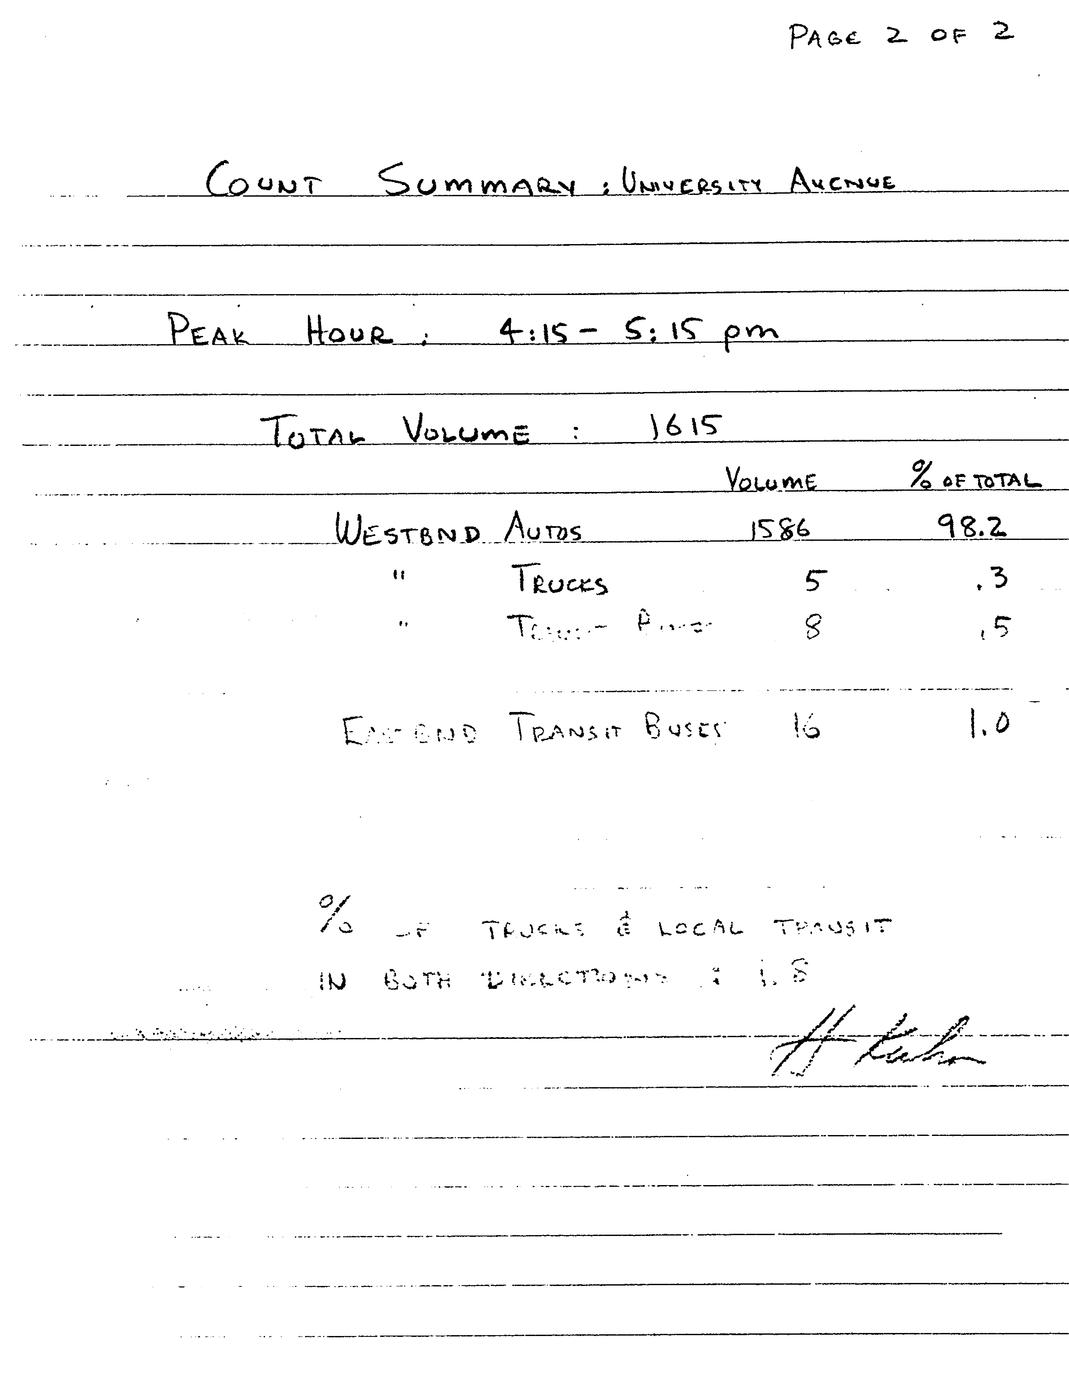 PAGE 2 OF 2
COUNT SUMMARY : UNIVERSITY AVENUE
PEAK HOUR : 4:15 - 5:15 pm
TOTAL VOLUME : 1615
VOLUME % OF TOTAL
WESTBND AUTOS 1586 98.2
" TRUCKS 5 .3
" TRANSIT BUSES 8 .5
EASTBND TRANSIT BUSES 16 1.0
% OF TRUCKS & LOCAL TRANSIT
IN BOTH DIRECTIONS : 1.8
H Kuhn